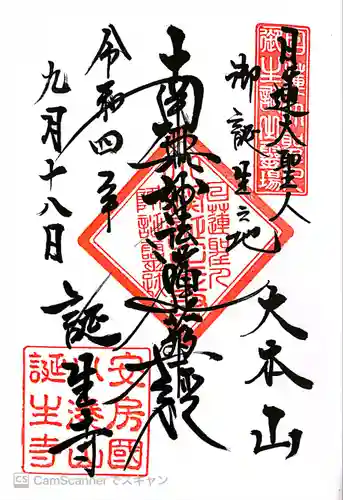 日蓮大聖人
御誕生之地
大本山
南無妙法蓮華経
令和四年
九月十八日
誕生寺
安房國
小湊山
誕生寺
CS CamScanner でスキャン